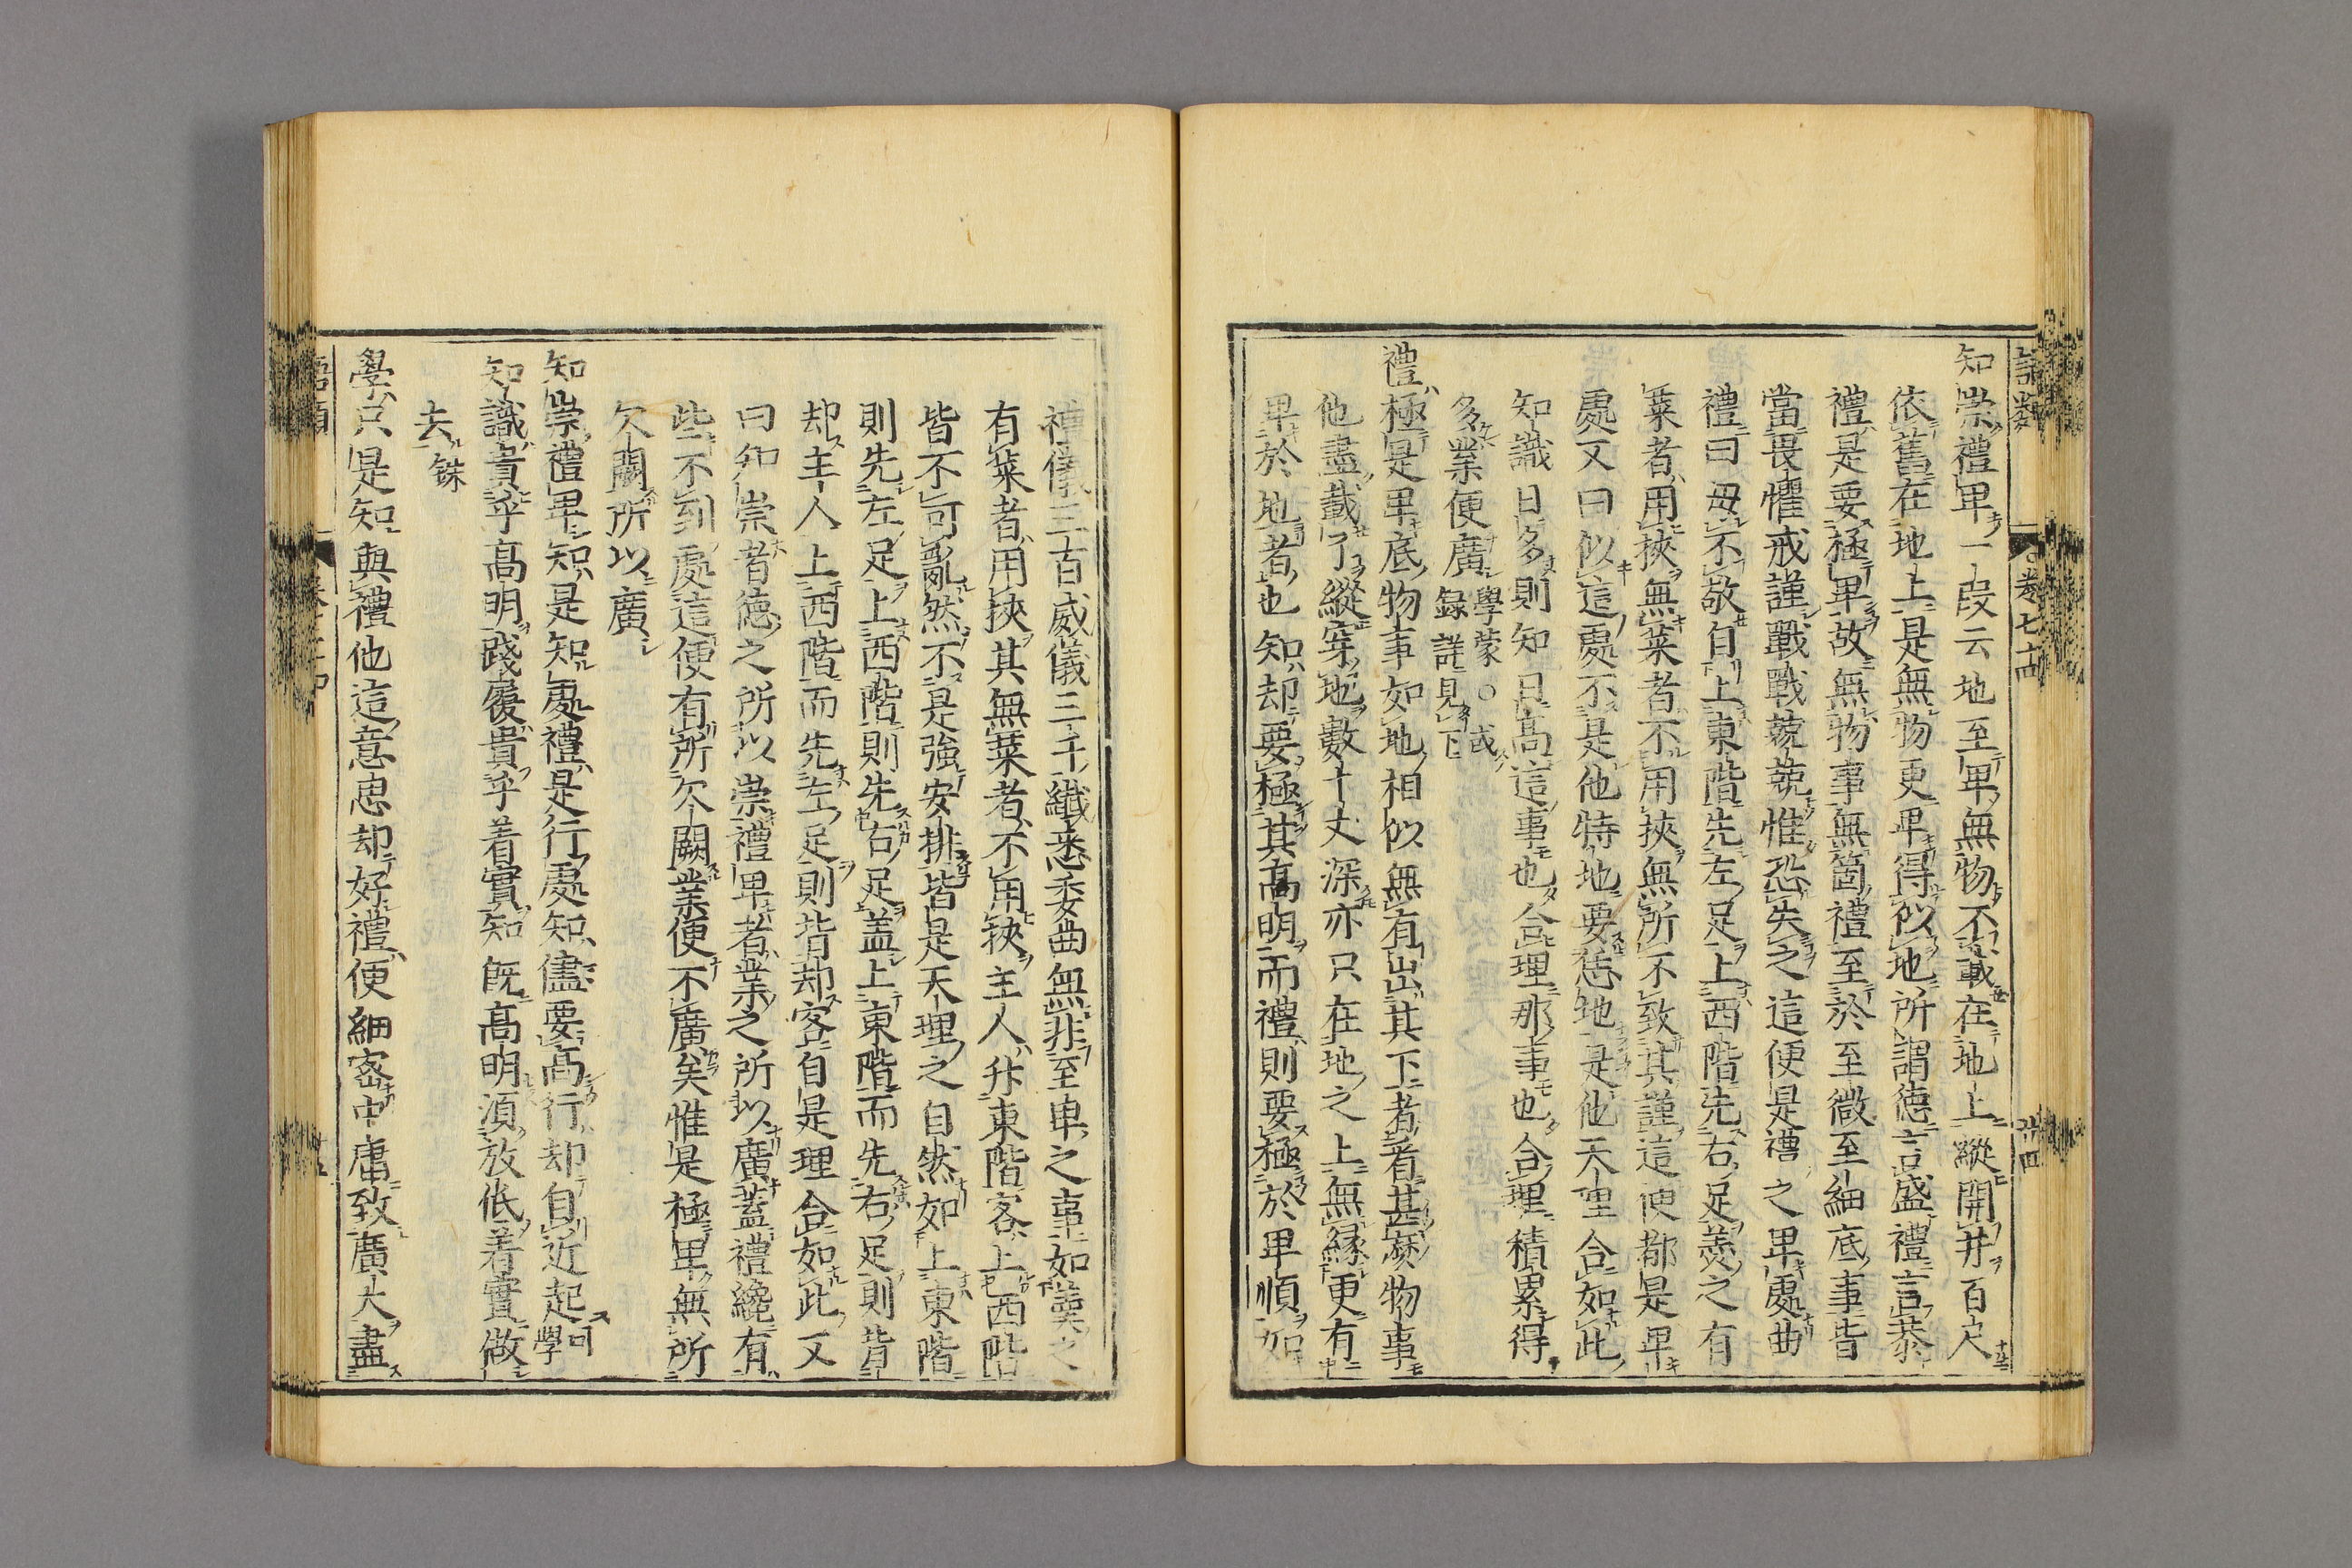 語類 卷七十四
知崇禮卑一段云地至卑無物不載在地上縱開井百尺
依舊在地上是無物更卑得似地所謂德言盛禮言恭
禮是要極卑故無物事無箇禮至於至微至細底事皆
當畏懼戒謹戰戰兢兢惟恐失之這便是禮之卑處曲
禮曰毋不敬自上東階先左足上西階先右足羹之有
菜者用挾無菜者不用挾無所不致其謹這便都是卑
處又曰似這處不是他特地要恁地是他天理合如此
知識日多則知日高這事也合理那事也合理積累得
多業便廣 學蒙○或錄詳見下
禮極是卑底物事如地相似無有出其下者看甚麼物事
他盡載了縱穿地數十丈深亦只在地之上無緣更有
卑於地者也知却要極其高明而禮則要極於卑順如
禮儀三百威儀三千纖悉委曲無非至卑之事如羹之
有菜者用挾其無菜者不用挾主人升東階客上西階
皆不可亂然不是強安排皆是天理之自然如上東階
則先左足上西階則先右足盖上東階而先右足則背
却主人上西階而先左足則背却客自是理合如此又
曰知崇者德之所以崇禮卑者業之所以廣蓋禮纔有
些不到處這便有所欠闕業便不廣矣惟是極卑無所
欠闕所以廣
知崇禮卑知是知處禮是行處知儘要高行却自近起 可學
知識貴乎高明踐履貴乎着實知既高明湏放低着實做
去 銖
學只是知與禮他這意思却好禮便細密中庸致廣大盡
語類